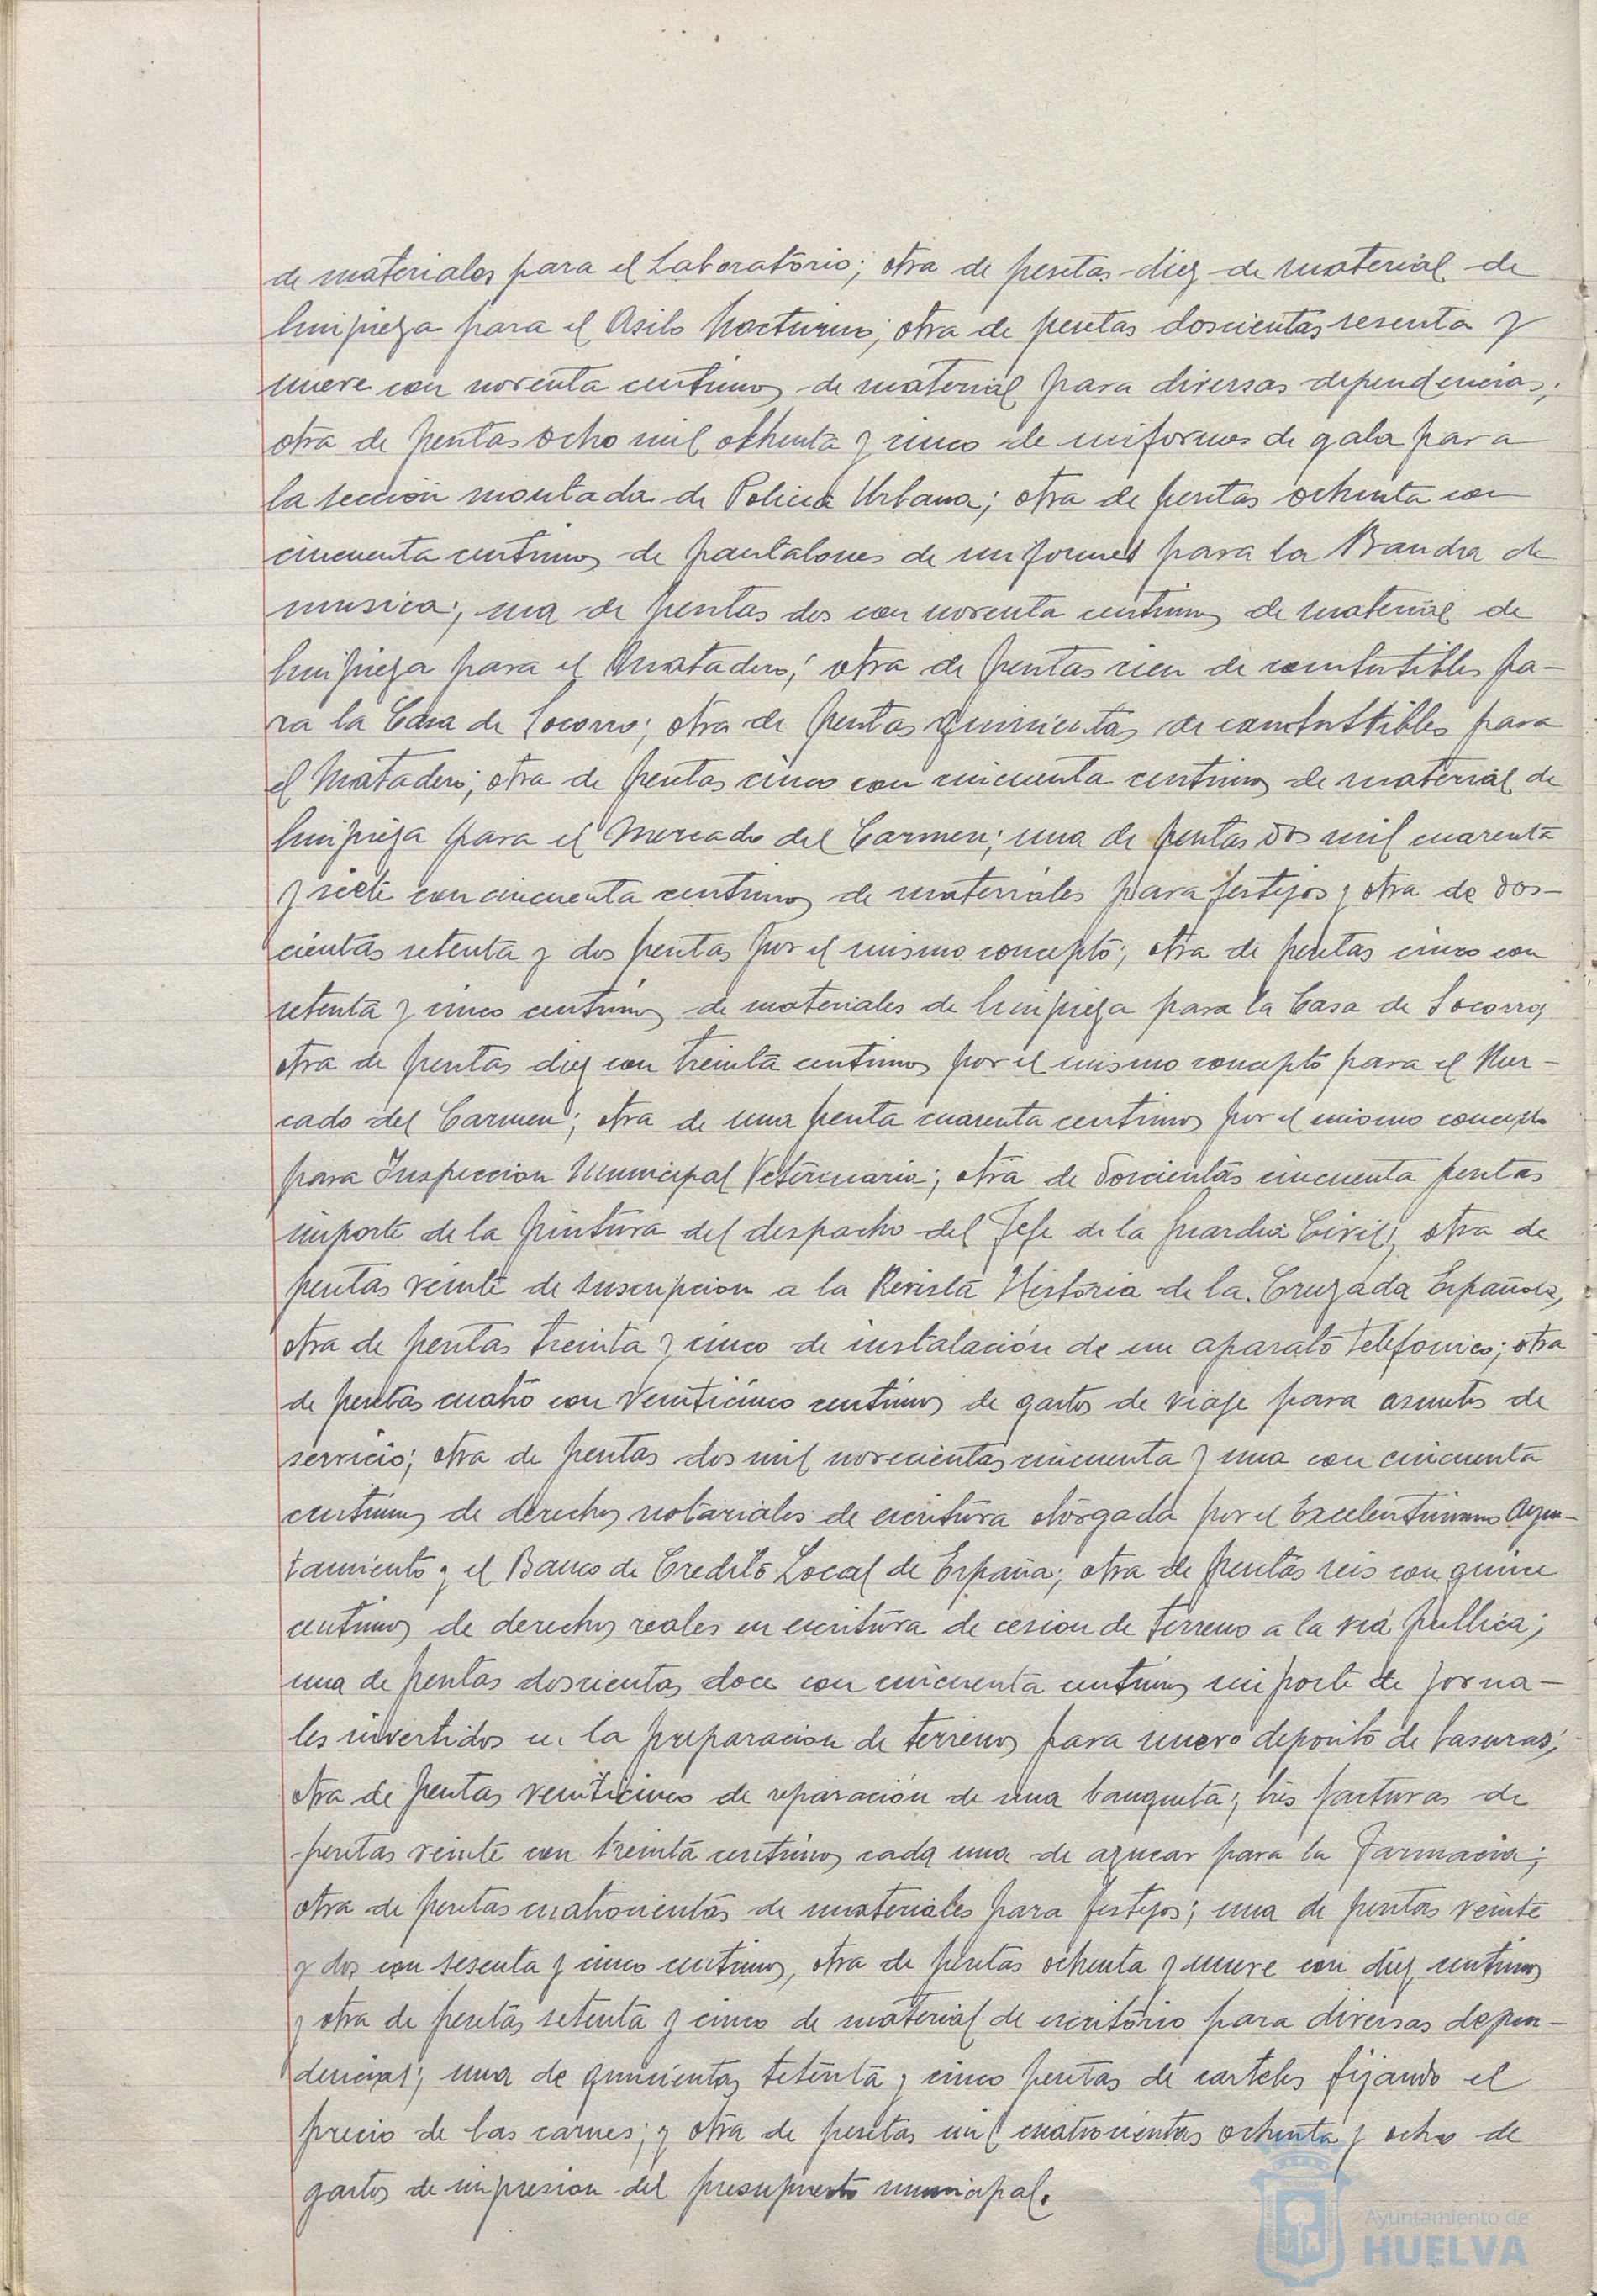 de materiales para el Laboratorio; otra de pesetas diez de material de
limpieza para el Asilo Nocturno; otra de pesetas doscientas sesenta y
nueve con noventa centimos de material para diversas dependencias;
otra de pesetas ocho mil ochenta y cinco de uniformes de gala para
la sección montada de Policia Urbana; otra de pesetas ochenta con
cincuenta centimos de pantalones de uniformes para la Banda de
musica; una de pesetas dos con noventa centimos de material de
limpieza para el Matadero; otra de pesetas cien de combustibles pa-
ra la Casa de Socorro; otra de pesetas quinientas de combustibles para
el Matadero; otra de pesetas cinco con cincuenta centimos de material de
limpieza para el Mercado del Carmen; una de pesetas dos mil cuarenta
y siete con cincuenta centimos de materiales para festejos y otra de dos-
cientas setenta y dos pesetas por el mismo concepto; otra de pesetas cinco con
setenta y cinco centimos de materiales de limpieza para la Casa de Socorro;
otra de pesetas diez con treinta centimos por el mismo concepto para el Mer-
cado del Carmen; otra de una peseta cuarenta centimos por el mismo concepto
para Inspeccion Municipal Veterinaria; otra de doscientas cincuenta pesetas
importe de la pintura del despacho del Jefe de la Guardia Civil; otra de
pesetas veinte de suscripcion a la Revista Historia de la Cruzada Española,
otra de pesetas treinta y cinco de instalación de un aparato telefonico; otra
de pesetas cuatro con veinticinco centimos de gastos de viaje para asuntos de
servicio; otra de pesetas dos mil novecientas cincuenta y una con cincuenta
centimos de derechos notariales de escritura otorgada por el Excelentisimo Ayun-
tamiento y el Banco de Credito Local de España; otra de pesetas seis con quince
centimos de derechos reales en escritura de cesion de terreno a la via publica;
una de pesetas doscientas doce con cincuenta centimos importe de jorna-
les invertidos en la preparacion de terrenos para nuevo deposito de basuras;
otra de pesetas veinticinco de reparación de una banqueta; tres facturas de
pesetas veinte con treinta centimos cada una de azucar para la Farmacia;
otra de pesetas cuatrocientas de materiales para festejos; una de pesetas veinte
y dos con sesenta y cinco centimos, otra de pesetas ochenta y nueve con diez centimos
y otra de pesetas setenta y cinco de material de escritorio para diversas depen-
dencias; una de quinientas setenta y cinco pesetas de carteles fijando el
precio de las carnes; y otra de pesetas mil cuatrocientas ochenta y ocho de
gastos de impresion del presupuesto municipal.
Ayuntamiento de
HUELVA